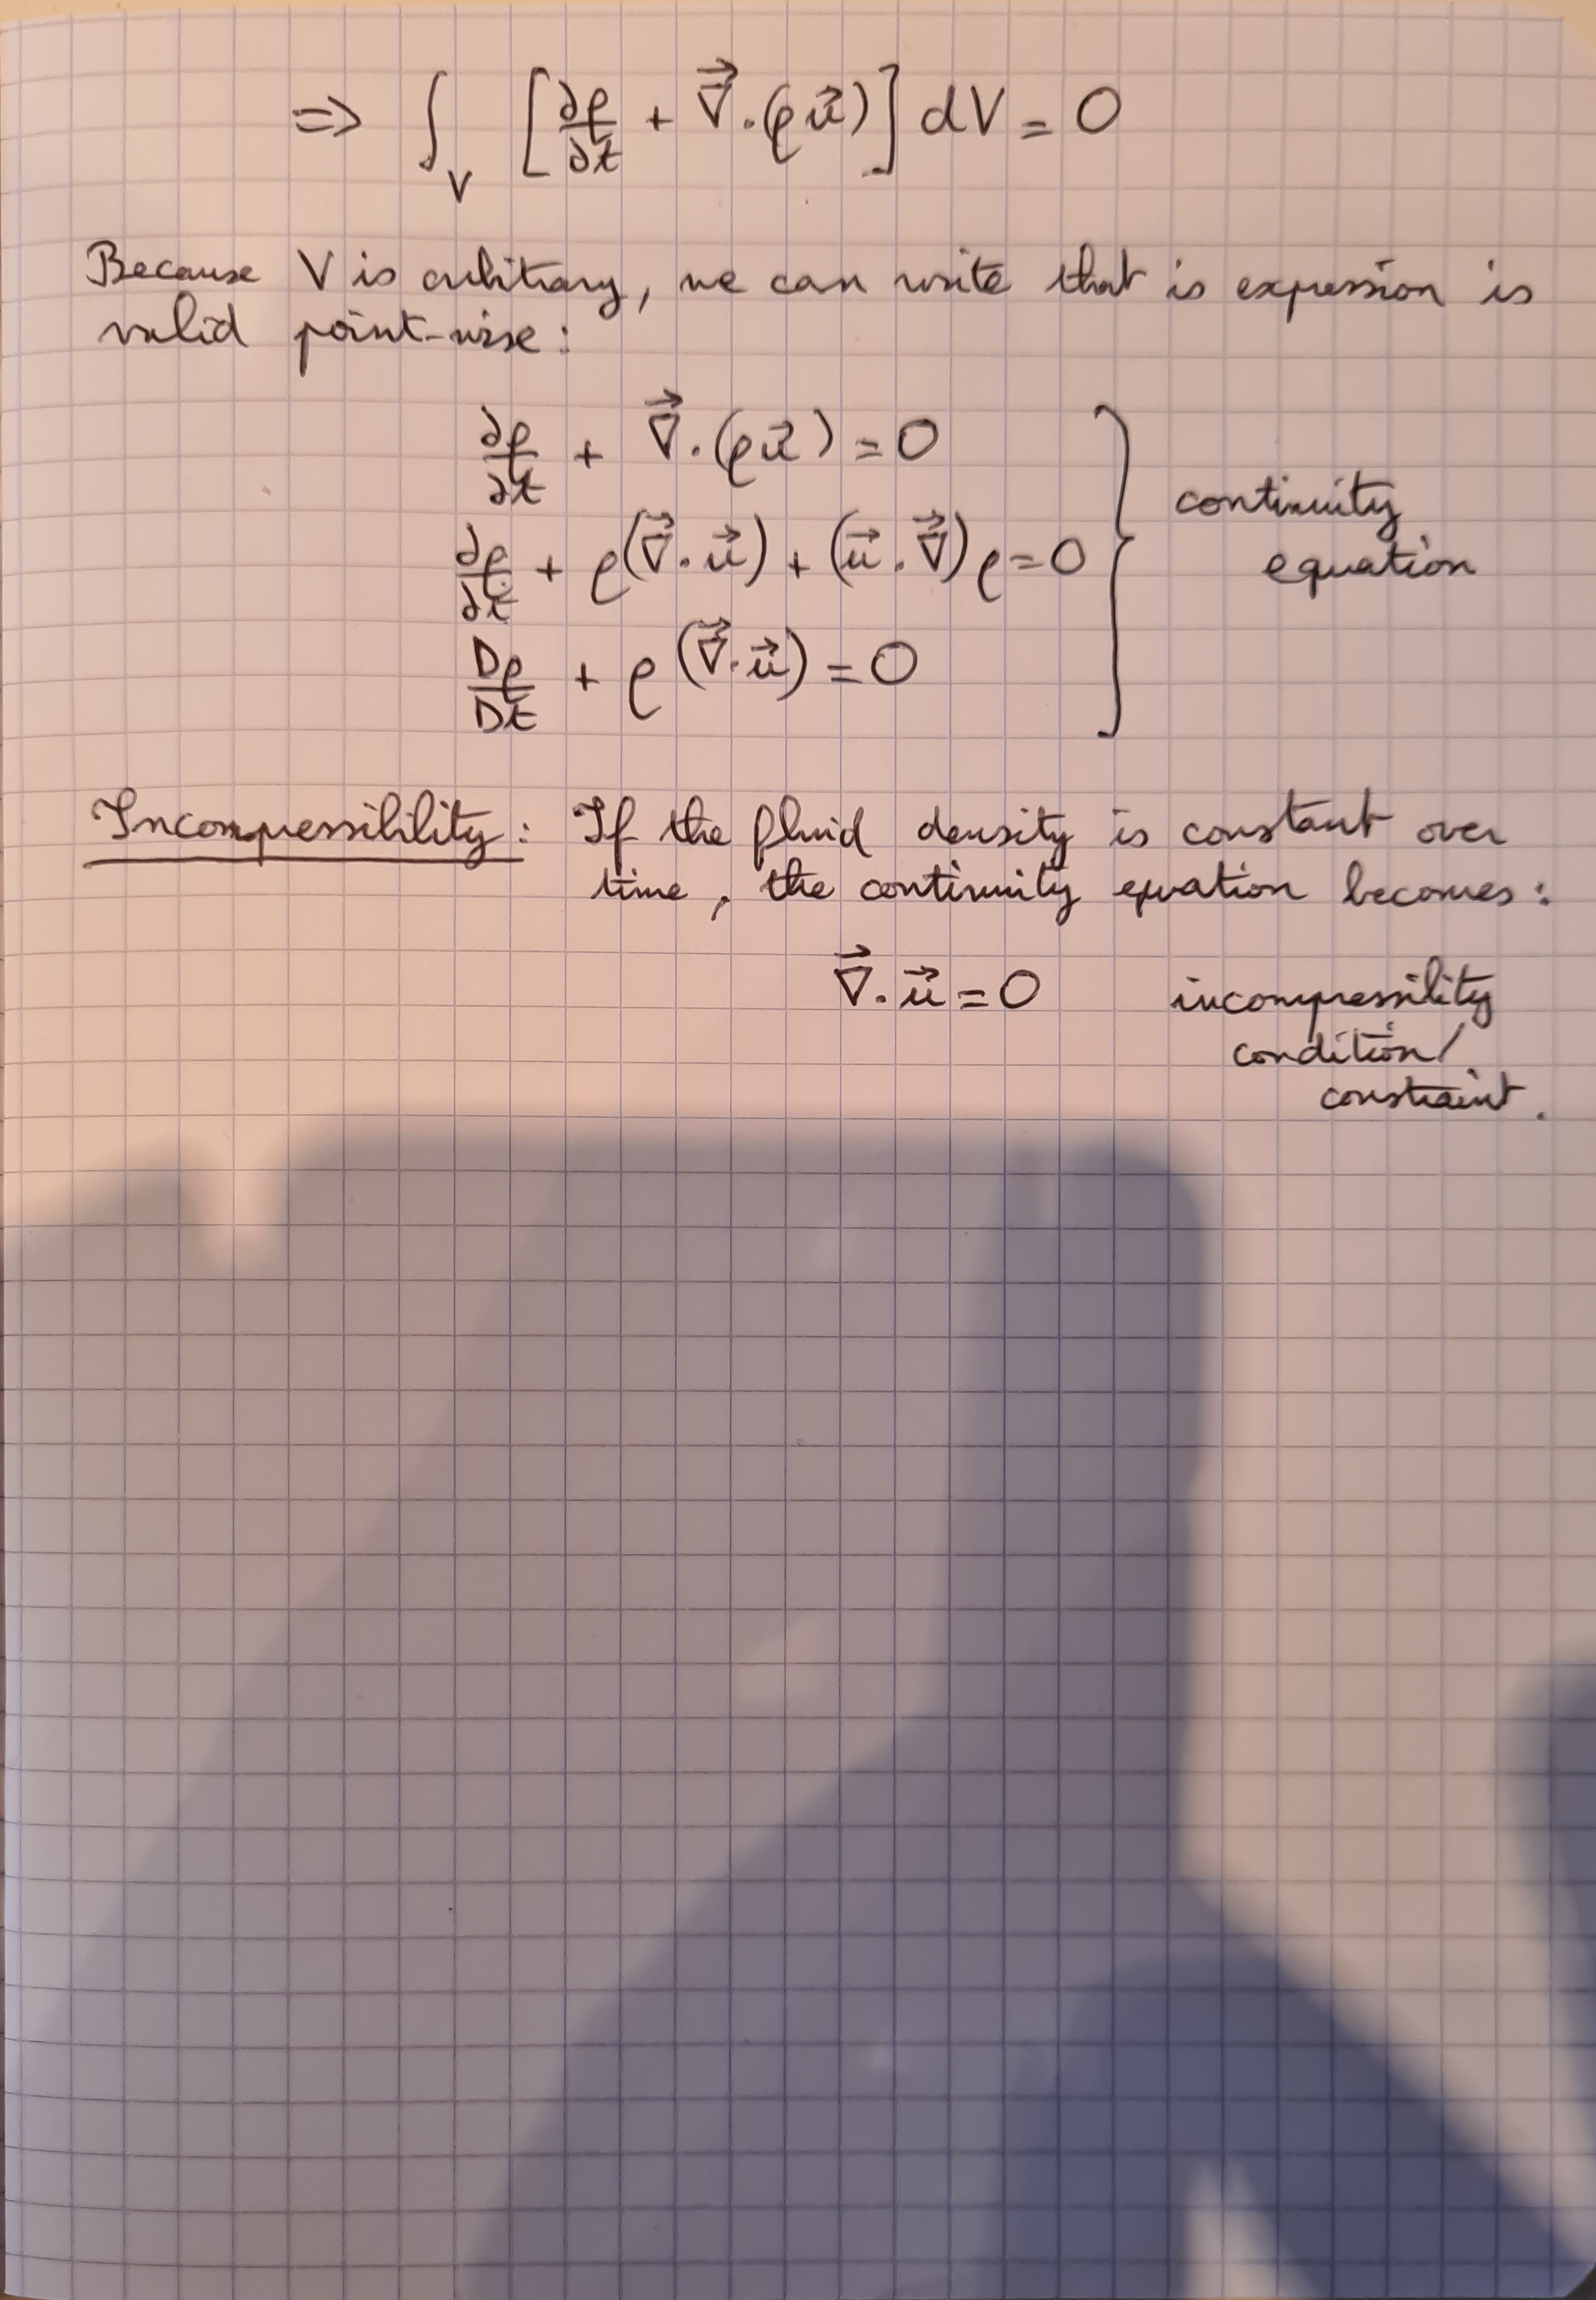 ⇒ ∫_V [∂ρ/∂t + ∇⃗.(ρu⃗)] dV = 0
Because V is arbitrary, we can write that is expression is
valid point-wise:
∂ρ/∂t + ∇⃗.(ρu⃗) = 0
∂ρ/∂t + ρ(∇⃗.u⃗) + (u⃗.∇⃗)ρ = 0
Dρ/Dt + ρ(∇⃗.u⃗) = 0
continuity
equation
Incompressibility: If the fluid density is constant over
time, the continuity equation becomes:
∇⃗.u⃗ = 0 incompressility
condition/
constraint.